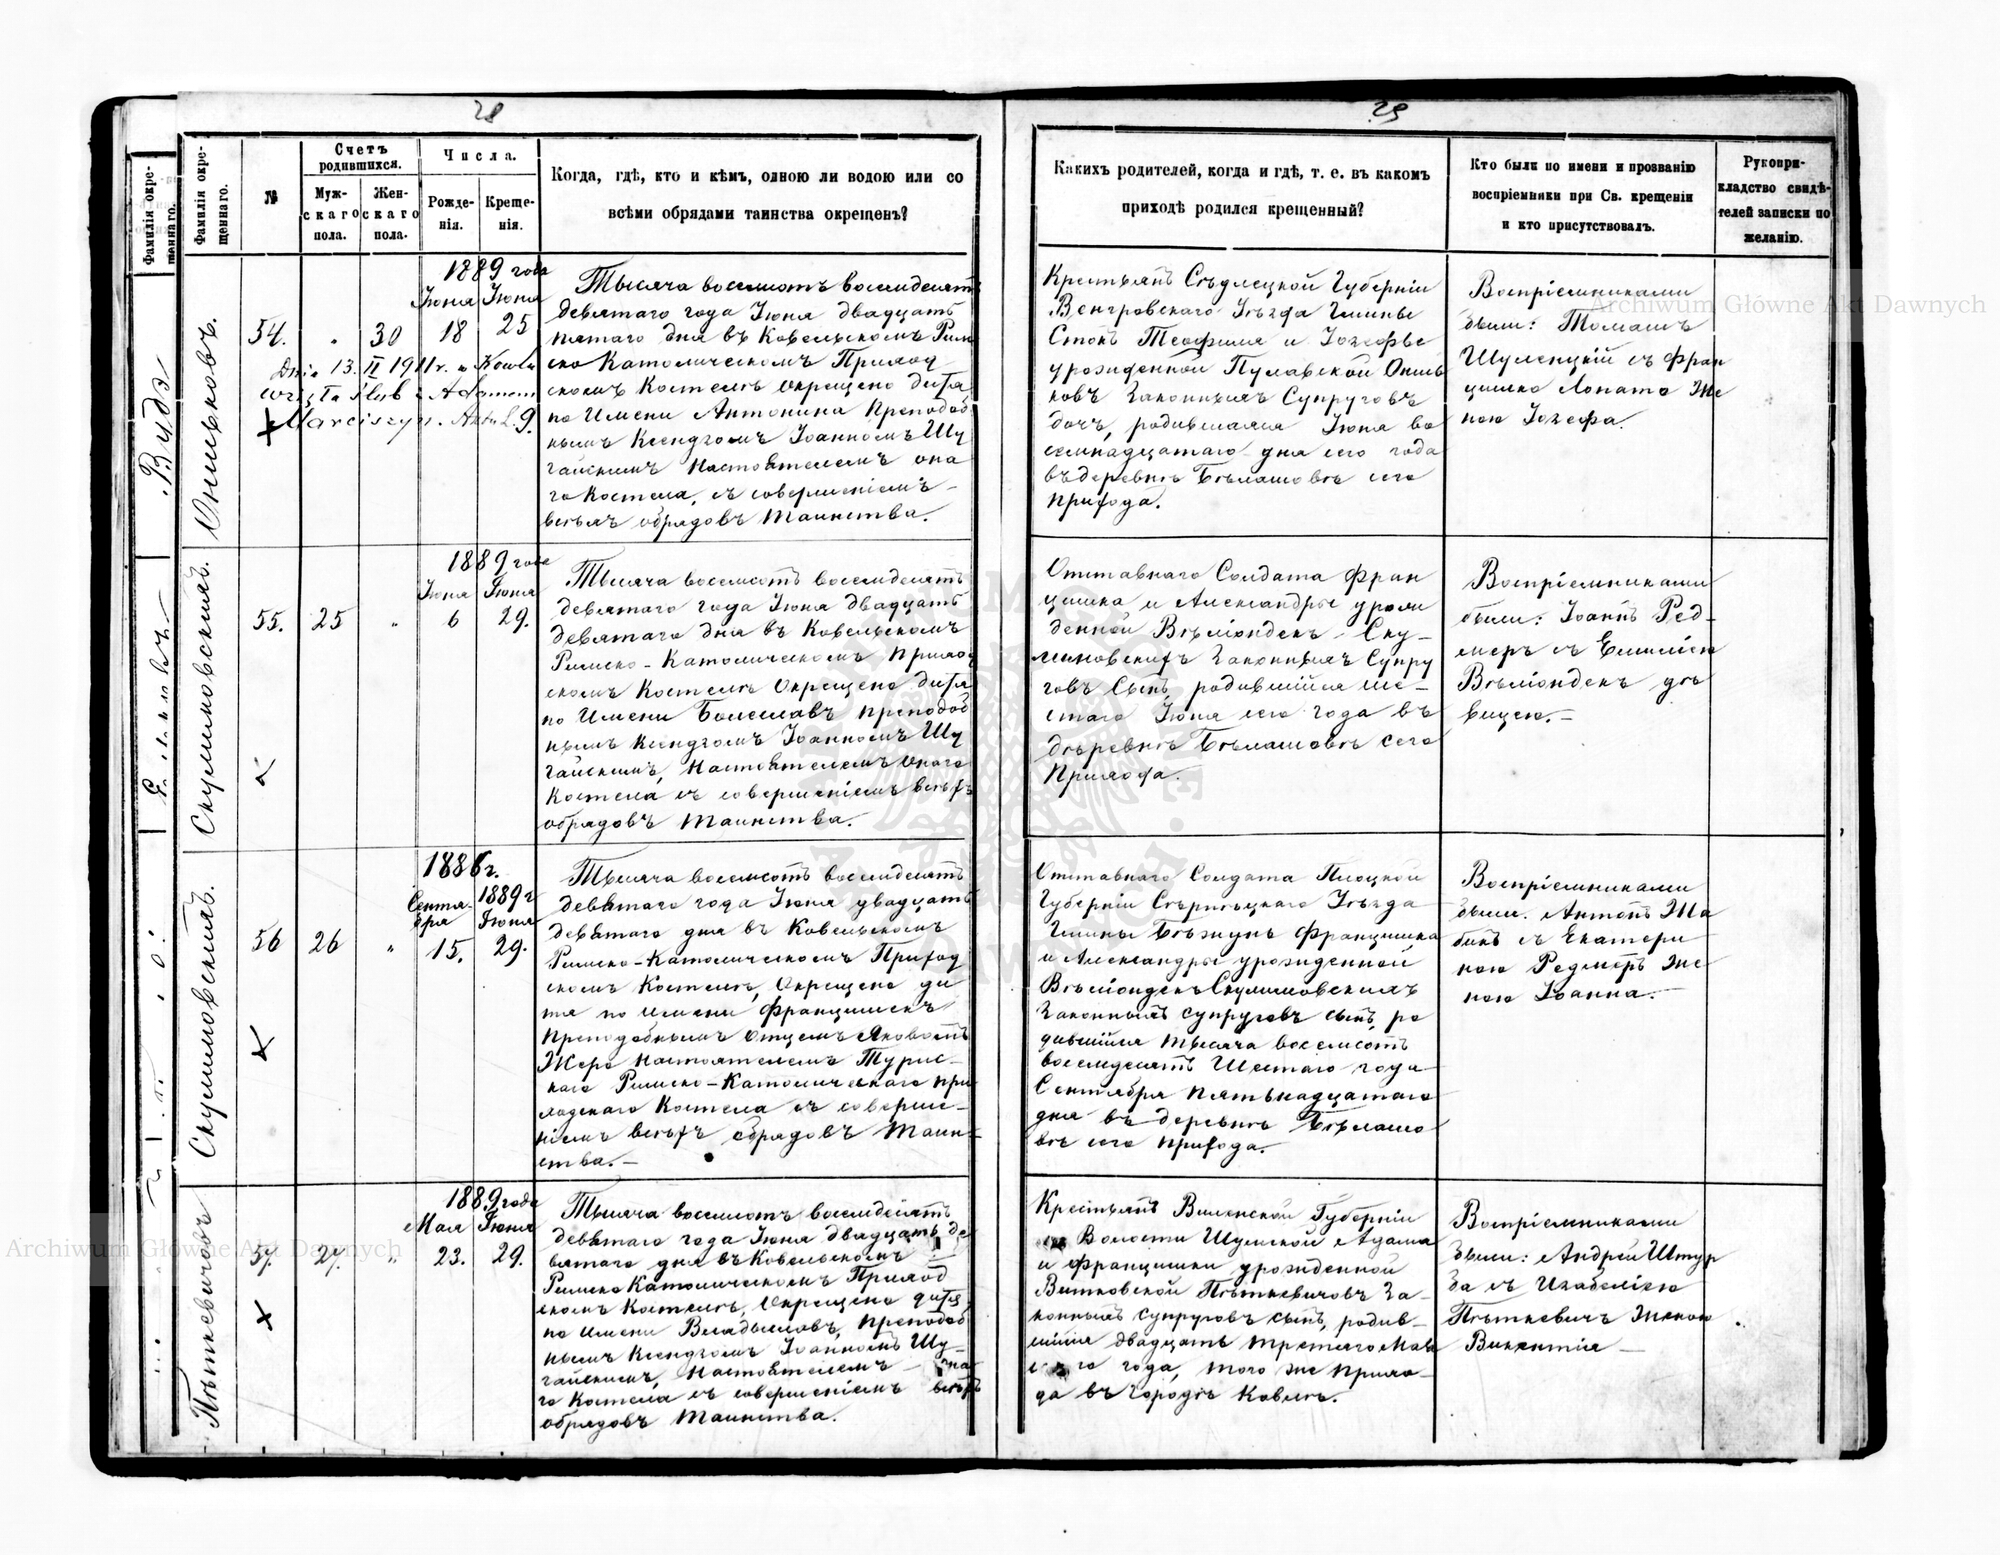 28
Фамилія окре-
щеннаго.
Фамилія окре-
щеннаго.
№
Счетъ
родившихся.
Муж-
скаго
пола.
Жен-
скаго
пола.
Числа.
Рожде-
нія.
Креще-
нія.
Когда, гдѣ, кто и кѣмъ, одною ли водою или со
всѣми обрядами таинства окрещенъ?
54.
30
1889 года
Іюня Іюня
18 25
Dnia 13. II 1911 r. w Kowlu
wzięła ślub z Adamem
Marciszyn. Akt L. 9.
Тысяча восемьсотъ восемьдесятъ
девятаго года Іюня двадцать
пятаго дня въ Ковельскомъ Рим
ско Католическомъ Приход
скомъ Костелѣ окрещено дитя
по Имени Антонина Преподоб
нымъ Ксендзомъ Іоанномъ Шу
гайскимъ Настоятелемъ она
го Костела, съ совершеніемъ
всѣхъ обрядовъ Таинства.
Скумповскій.
55.
25
"
1889 года
Іюня Іюня
6 29.
Тысяча восемсотъ восемдесятъ
девятаго года Іюня двадцать
девятаго дня въ Ковельскомъ
Римско-Католическомъ Приход
скомъ Костелѣ Окрещено дитя
по Имени Болеславъ преподоб
нымъ Ксендзомъ Іоанномъ Шу
гайскимъ, Настоятелемъ онаго
Костела съ совершеніемъ всѣхъ
обрядовъ Таинства.
56
26
"
1886 г.
Сентя-
бря
1889 г
Іюня
15. 29.
Тысяча восемсотъ восемдесятъ
девятаго года Іюня двадцать
девятаго дня въ Ковельскомъ
Римско-Католическомъ Приход
скомъ Костелѣ, Окрещено ди
тя по имени Францишекъ
Преподобнымъ Отцемъ
Настоятелемъ Турис-
каго Римско-Католическаго при
ходскаго Костела съ соверше-
ніемъ всѣхъ обрядовъ Таин-
ства.-
Пѣткевичовъ
57.
27.
"
1889 года
Мая Іюня
23. 29.
Тысяча восемсотъ восемдесятъ
девятаго года Іюня двадцать де
вятаго дня въ Ковельскомъ
Римско Католическомъ Приход
скомъ Костелѣ, Окрещено дитя,
по имени Владыславъ, преподоб
нымъ Ксендзомъ Іоанномъ Шу-
гайскимъ, Настоятелемъ - она
го Костела съ совершеніемъ всѣхъ
обрядовъ Таинства.
29
Какихъ родителей, когда и гдѣ, т. е. въ какомъ
приходѣ родился крещенный?
Кто были по имени и прозванію
воспріемники при Св. крещеніи
и кто присутствовалъ.
Рукопри-
кладство свидѣ-
телей записки по
желанію.
Крестьянъ Сѣдлецкой Губерніи
Венгровскаго Уѣзда Гмины
Стокъ Теофиля и Іозефы
урожденной Пулавской
законныхъ Супруговъ
дочь, родившаяся Іюня во
семнадцатаго дня сего года
въ деревнѣ Бѣлашовѣ сего
прихода.
Воспріемниками
были: Томашъ
Шуленцкій съ Фран
цишко Лопата Же
ною Іозефа.
Отставнаго Солдата Фран
цишка и Александры урож
денной
законныхъ Супру
говъ Сынъ, родившійся ше-
стаго Іюня сего года въ
деревнѣ Бѣлашовѣ сего
Прихода.
Воспріемниками
были: Іоаннъ Ред-
меръ съ Емиліею
дѣ
вицею.-
Отставнаго Солдата Плоцкой
Губерніи Серпецкаго Уѣзда
Гмины Бѣжунь Францишка
и Александры урожденной
законныхъ супруговъ сынъ, ро
дившійся тысяча восемсотъ
восемдесятъ Шестаго года
Сентября пятьнадцатаго
дня въ деревнѣ Бѣлашо
вѣ сего прихода.
Воспріемниками
были: Антонъ Жа
бикъ съ Екатери
ною Редмеръ же
ною Іоанна.-
Крестьянъ Виленской Губерніи
Волости Шумской Адама
и Францишки урожденной
Витковской Пѣткевичовъ За
конныхъ супруговъ сынъ, родив-
шійся двадцать третьяго Мая
сего года, того же прихо-
да въ городѣ Ковлѣ.
Воспріемниками
были: Андрей Штур
ба съ Изабеллею
Пѣткевичъ женою
Викентія -
Archiwum Główne Akt Dawnych
Archiwum Główne Akt Dawnych